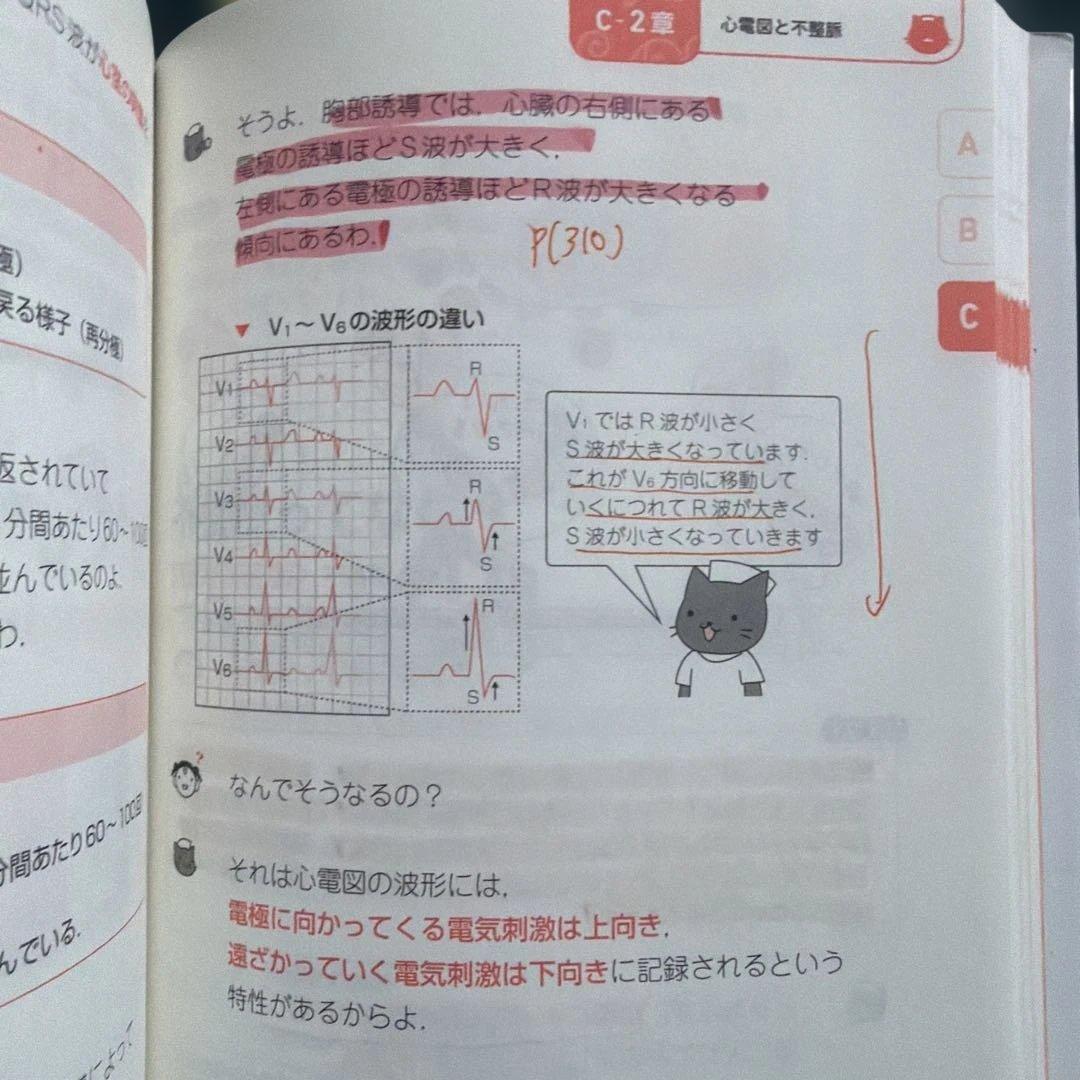 C-2章
心電図と不整脈
A
B
C
そうよ．胸部誘導では，心臓の右側にある
電極の誘導ほどS波が大きく，
左側にある電極の誘導ほどR波が大きくなる
傾向にあるわ．
P(310)
▼ V1～V6の波形の違い
V1
V2
V3
V4
V5
V6
R
S
R
S
R
S
V1ではR波が小さく
S波が大きくなっています．
これがV6方向に移動して
いくにつれてR波が大きく，
S波が小さくなっていきます
なんでそうなるの？
それは心電図の波形には，
電極に向かってくる電気刺激は上向き，
遠ざかっていく電気刺激は下向きに記録されるという
特性があるからよ．
極）
戻る様子（再分極）
返されていて
分間あたり60～100回
並んでいるのよ
わ．
分間あたり60～100回
んでいる．
によって